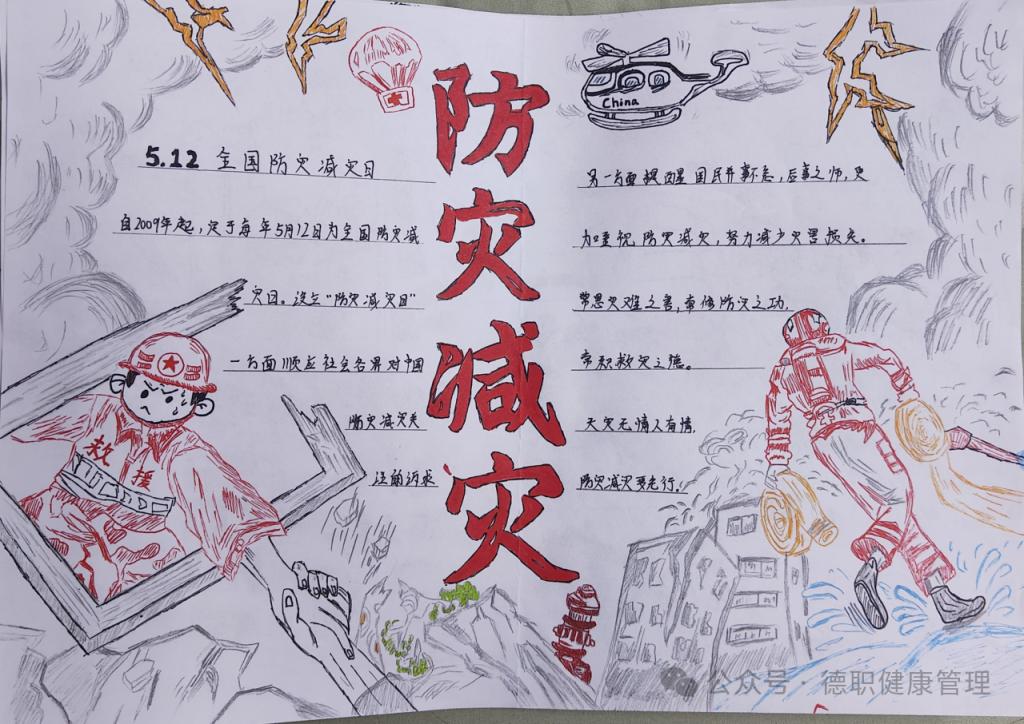 防灾减灾
China
5.12 全国防灾减灾日
自2009年起，定于每年5月12日为全国防灾减
灾日。设立“防灾减灾日”
一方面顺应社会各界对中国
防灾减灾关
注的诉求
另一方面提醒国民前事不忘，后事之师，更
加重视防灾减灾，努力减少灾害损失。
常思灾难之害，重修防灾之功，
常积救灾之德。
天灾无情人有情，
防灾减灾要先行！
救援
公众号·德职健康管理